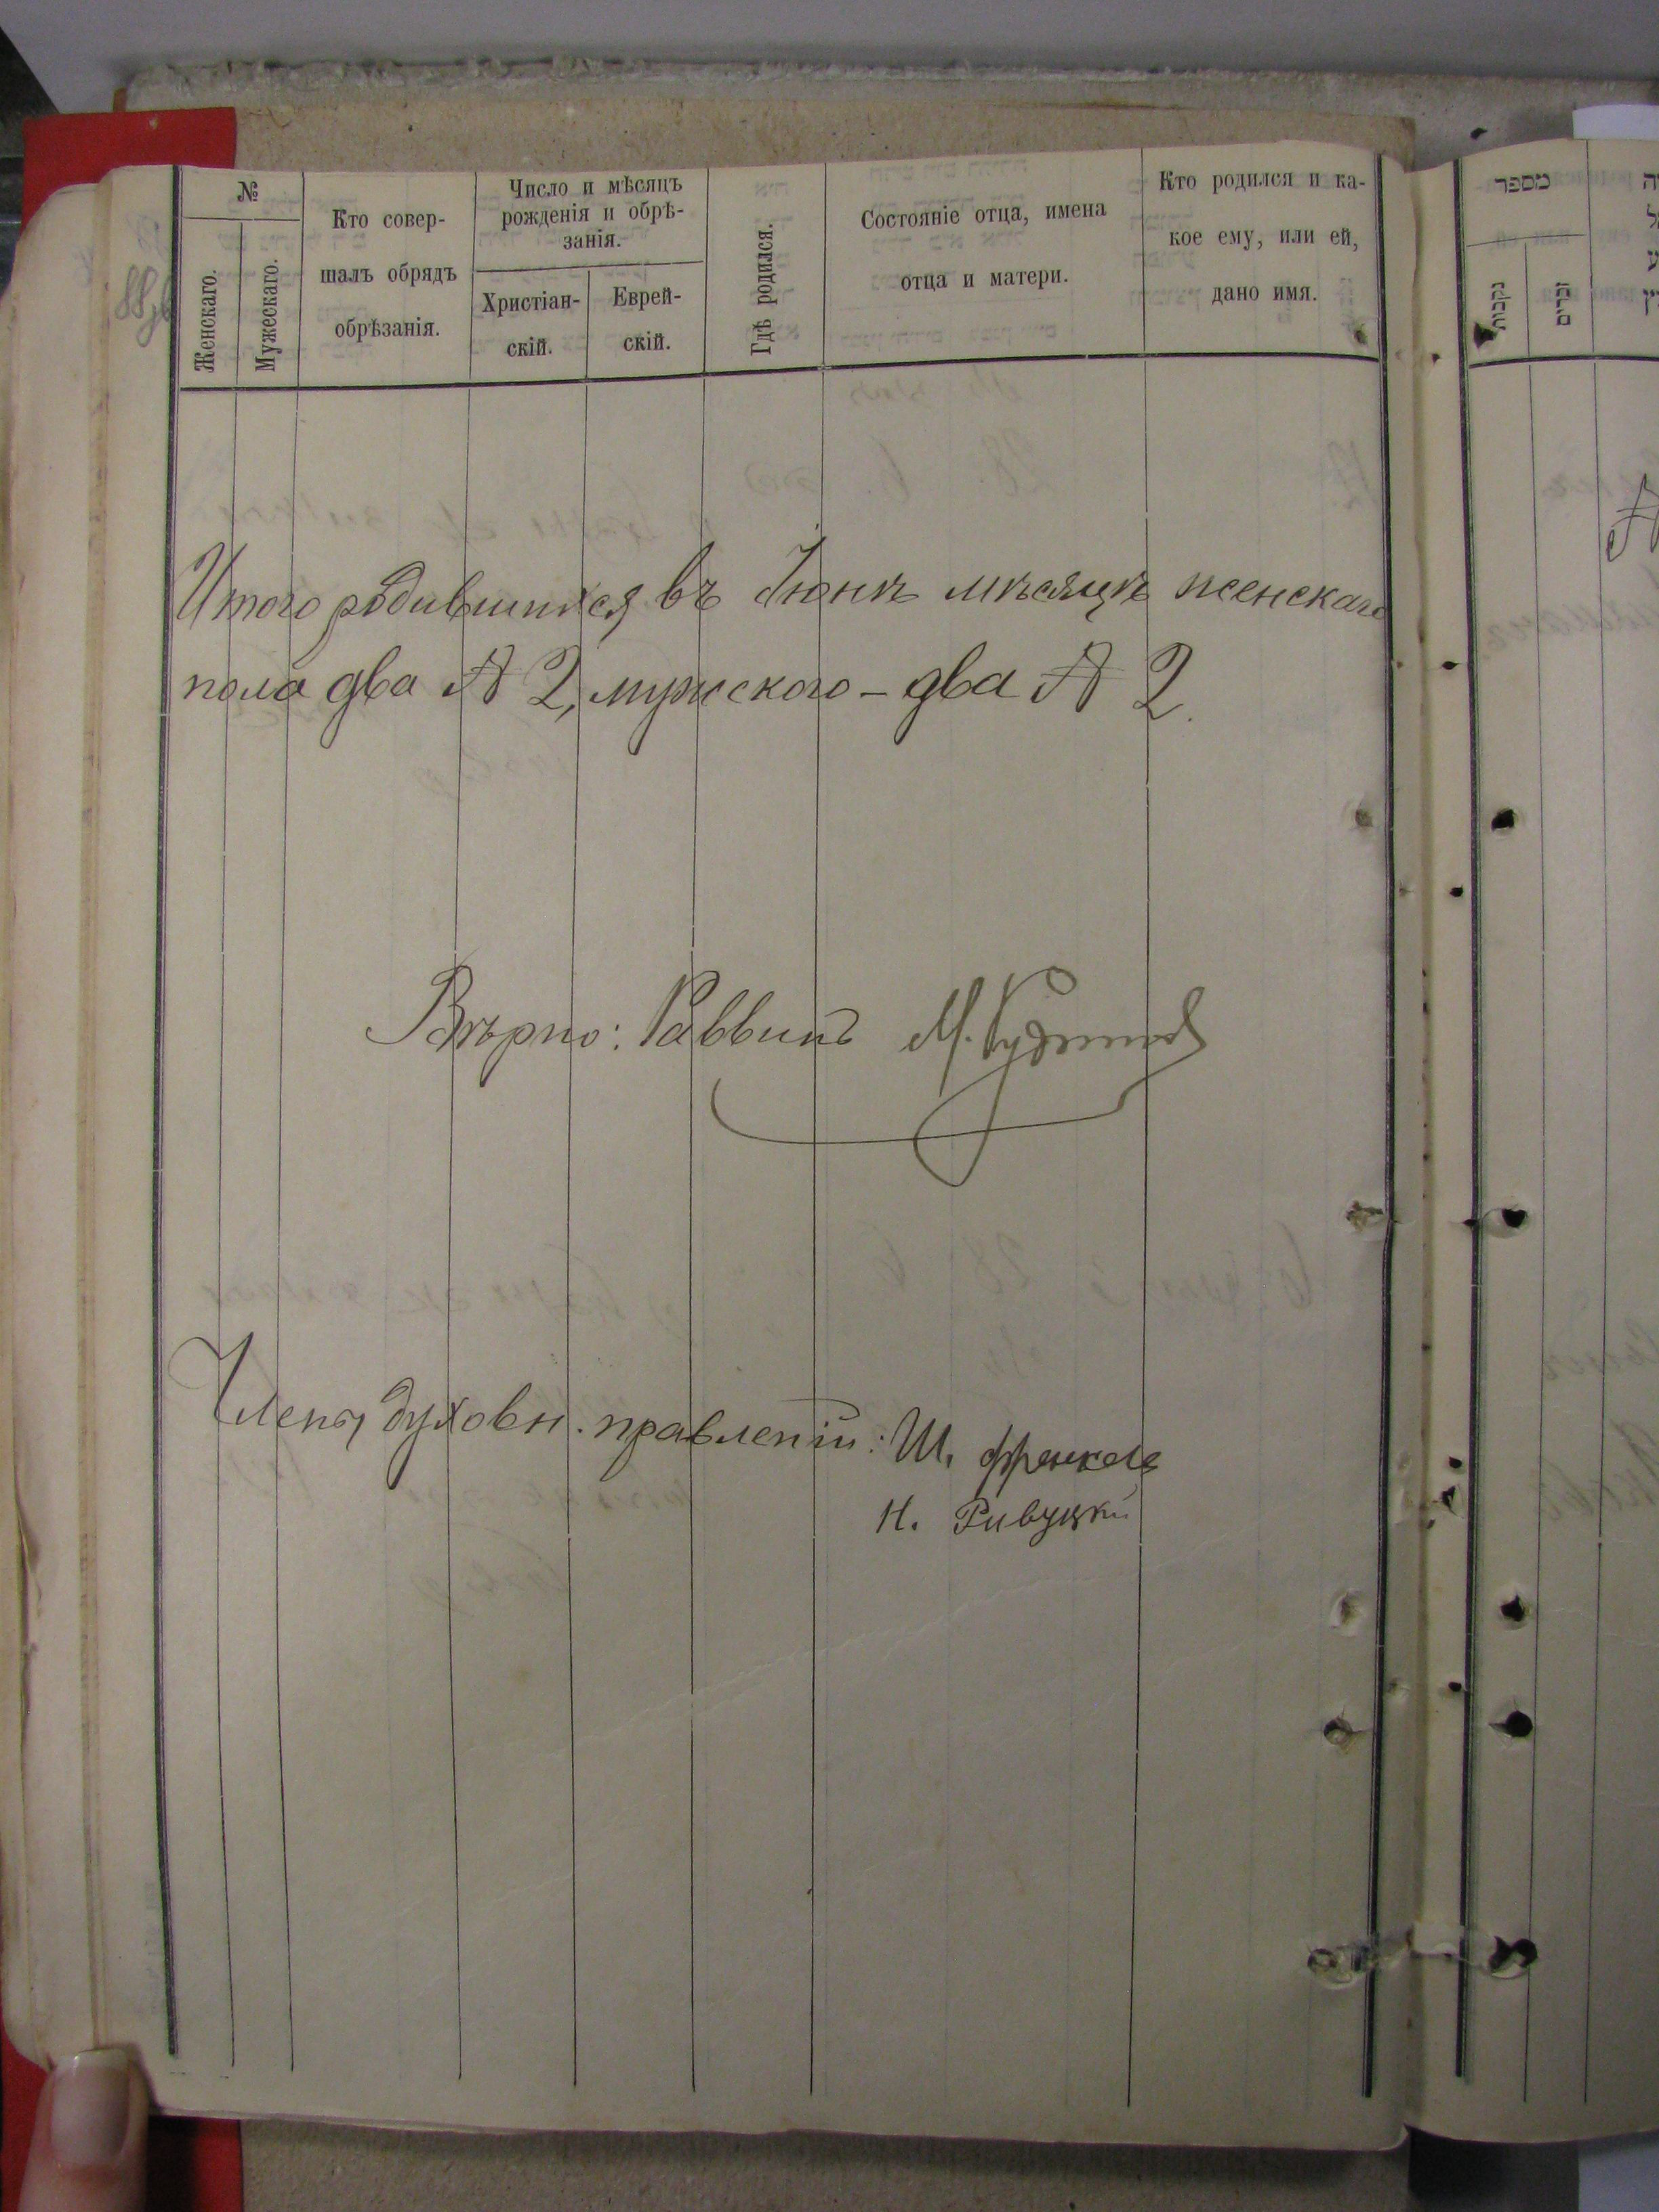 №
Женскаго.
Мужескаго.
Кто совер-
шалъ обрядъ
обрѣзанія.
Число и мѣсяцъ
рожденія и обрѣ-
занія.
Христіан-
скій.
Еврей-
скій.
Гдѣ родился.
Состояніе отца, имена
отца и матери.
Кто родился и ка-
кое ему, или ей,
дано имя.
Итого родившихся въ Іюнѣ мѣсяцѣ женскаго
пола два № 2, мужского – два № 2.
Вѣрно: Раввинъ М.
Члены духовн. правленій: Ш. Френкель
Н. Ривуцкий
מספר
נקבות
זכרים